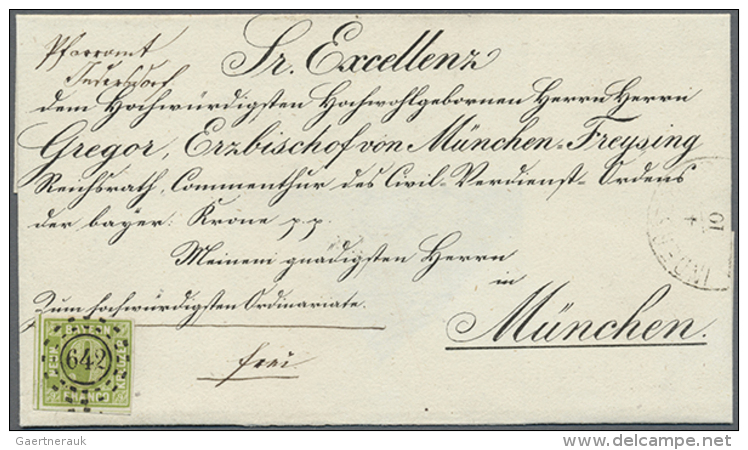 Pfarramt
Indersdorf
Sr. Excellenz
dem Hochwürdigsten Hochwohlgebornen Herrn Herrn
Gregor, Erzbischof von München-Freysing
Reichsrath, Commenthur des Civil-Verdienst-Ordens
der bayer: Krone p.p.
Meinem gnädigsten Herrn
in
München.
Zum hochwürdigsten Ordinariate.
frei
BAYERN
642
FRANCO
INDER
4
10
Gaertnerauk
delcampe.net